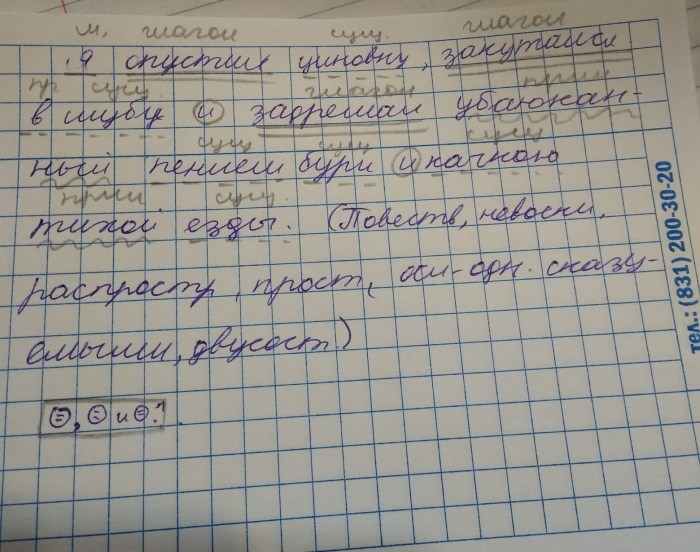 м, глагол сущ. глагол
Я опустил циновку, закутался
пр сущ. глагол прил
в шубу и задремал убаюкан-
сущ сущ сущ
ный пением бури и качкою
прил сущ.
тихой езды. (Повеств, невоскл,
распростр, прост, осл-одн. сказу-
емыми, двусост)
[⊜, ⊜ и ⊜.]
тел.: (831) 200-30-20